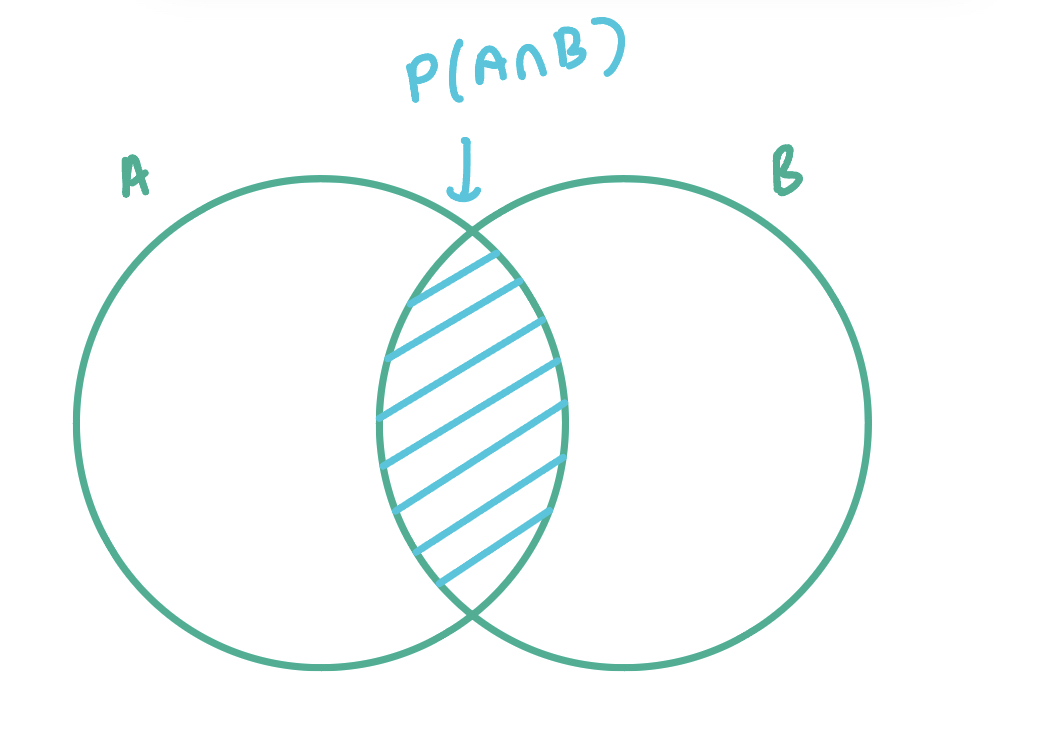 P(A∩B)
A
B